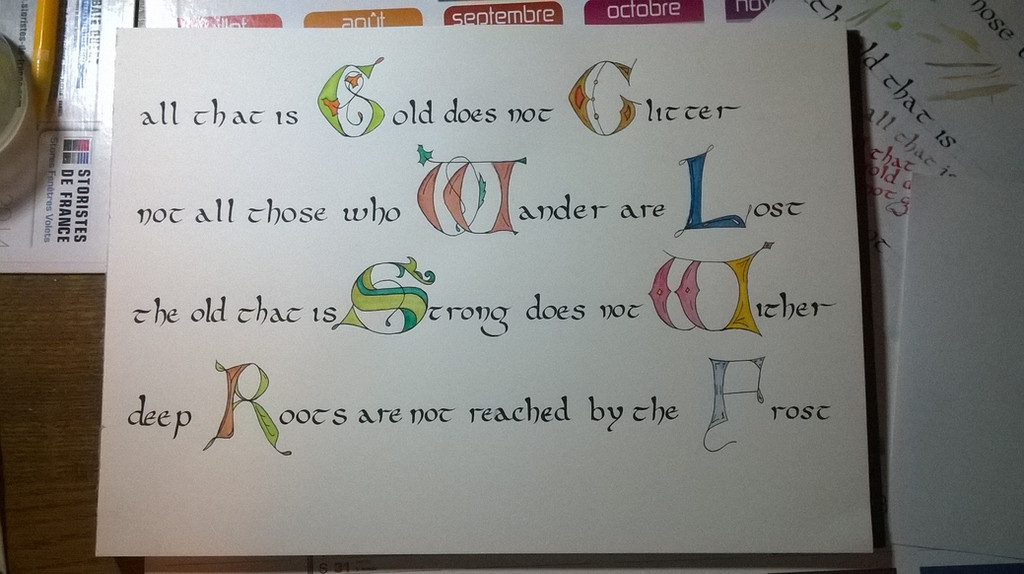 juillet
août
septembre
octobre
nov
all that is Gold does not Glitter
not all those who Wander are Lost
the old that is Strong does not Wither
deep Roots are not reached by the Frost
STORISTES
DE FRANCE
Stores Fenêtres Volets
ld that is
all that is
that
old
S 31